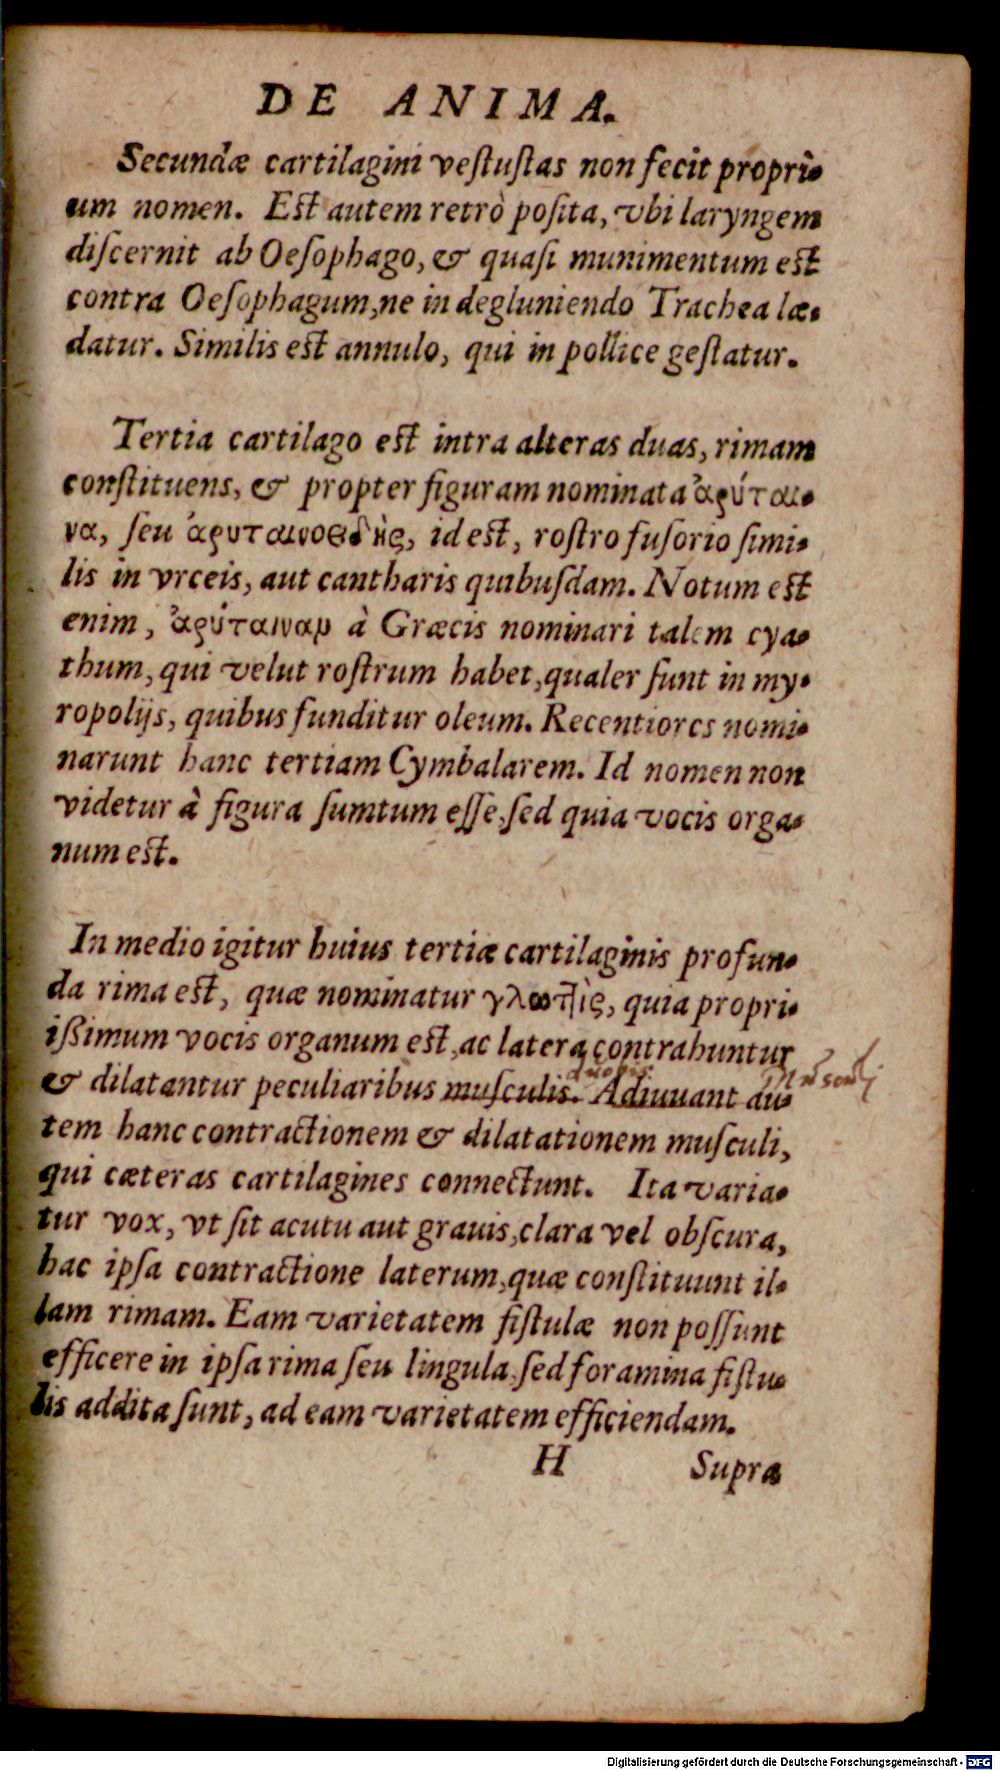 DE ANIMA.
Secundæ cartilagini veſtuſtas non fecit propri-
um nomen. Eſt autem retrò poſita, vbi laryngem
diſcernit ab Oeſophago, & quaſi munimentum eſt
contra Oeſophagum, ne in degluniendo Trachea læ-
datur. Similis eſt annulo, qui in pollice geſtatur.
Tertia cartilago eſt intra alteras duas, rimam
conſtituens, & propter figuram nominata ἀρύται-
να, ſeu ἀρυταινοειδὴς, id eſt, roſtro fuſorio ſimi-
lis in vrceis, aut cantharis quibuſdam. Notum eſt
enim, ἀρύταιναμ à Græcis nominari talem cya-
thum, qui velut roſtrum habet, qualer ſunt in my-
ropolijs, quibus funditur oleum. Recentiores nomi-
narunt hanc tertiam Cymbalarem. Id nomen non
videtur à figura ſumtum eſſe, ſed quia vocis orga-
num eſt.
In medio igitur huius tertiæ cartilaginis profun-
da rima eſt, quæ nominatur γλωττὶς, quia propri-
ißimum vocis organum eſt, ac latera contrahuntur
& dilatantur peculiaribus muſculis. Adiuuant au-
duobus
Musculi
tem hanc contractionem & dilatationem muſculi,
qui cæteras cartilagines connectunt. Ita varia-
tur vox, vt ſit acutu aut grauis, clara vel obſcura,
hac ipſa contractione laterum, quæ conſtituunt il-
lam rimam. Eam varietatem fiſtulæ non poſſunt
efficere in ipſa rima ſeu lingula, ſed foramina fiſtu-
lis addita ſunt, ad eam varietatem efficiendam.
H Supra
Digitalisierung gefördert durch die Deutsche Forschungsgemeinschaft - DFG